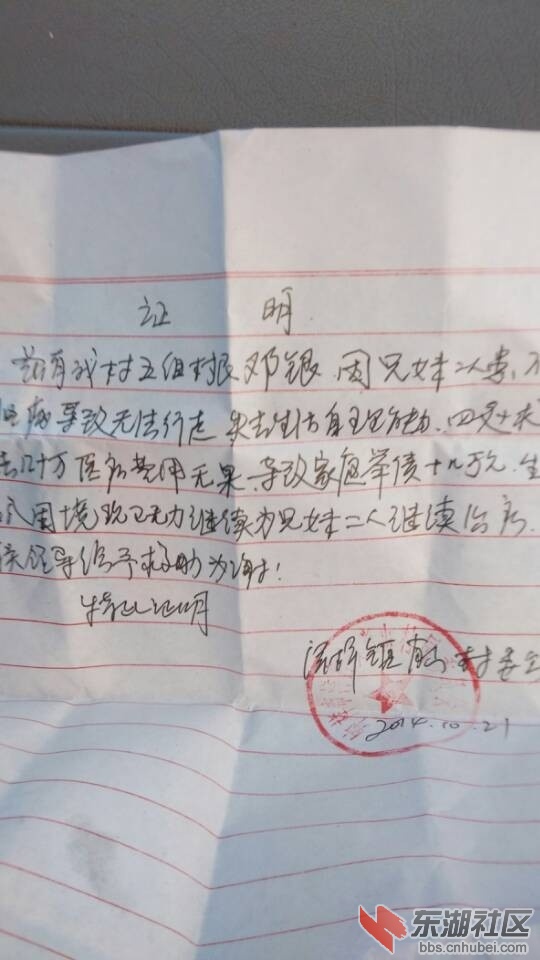 证 明
兹有我村五组村民邓银 因兄妹二人患 不
病导致无法行走 失去生活自理能力 四处求
去几十万医疗费用无果 导致家庭举债十几万元 生
入困境现已无力继续为兄妹二人继续治疗
领导给予救助为谢!
特此证明
镇 村委会
2014.10.21
东湖社区
bbs.cnhubei.com